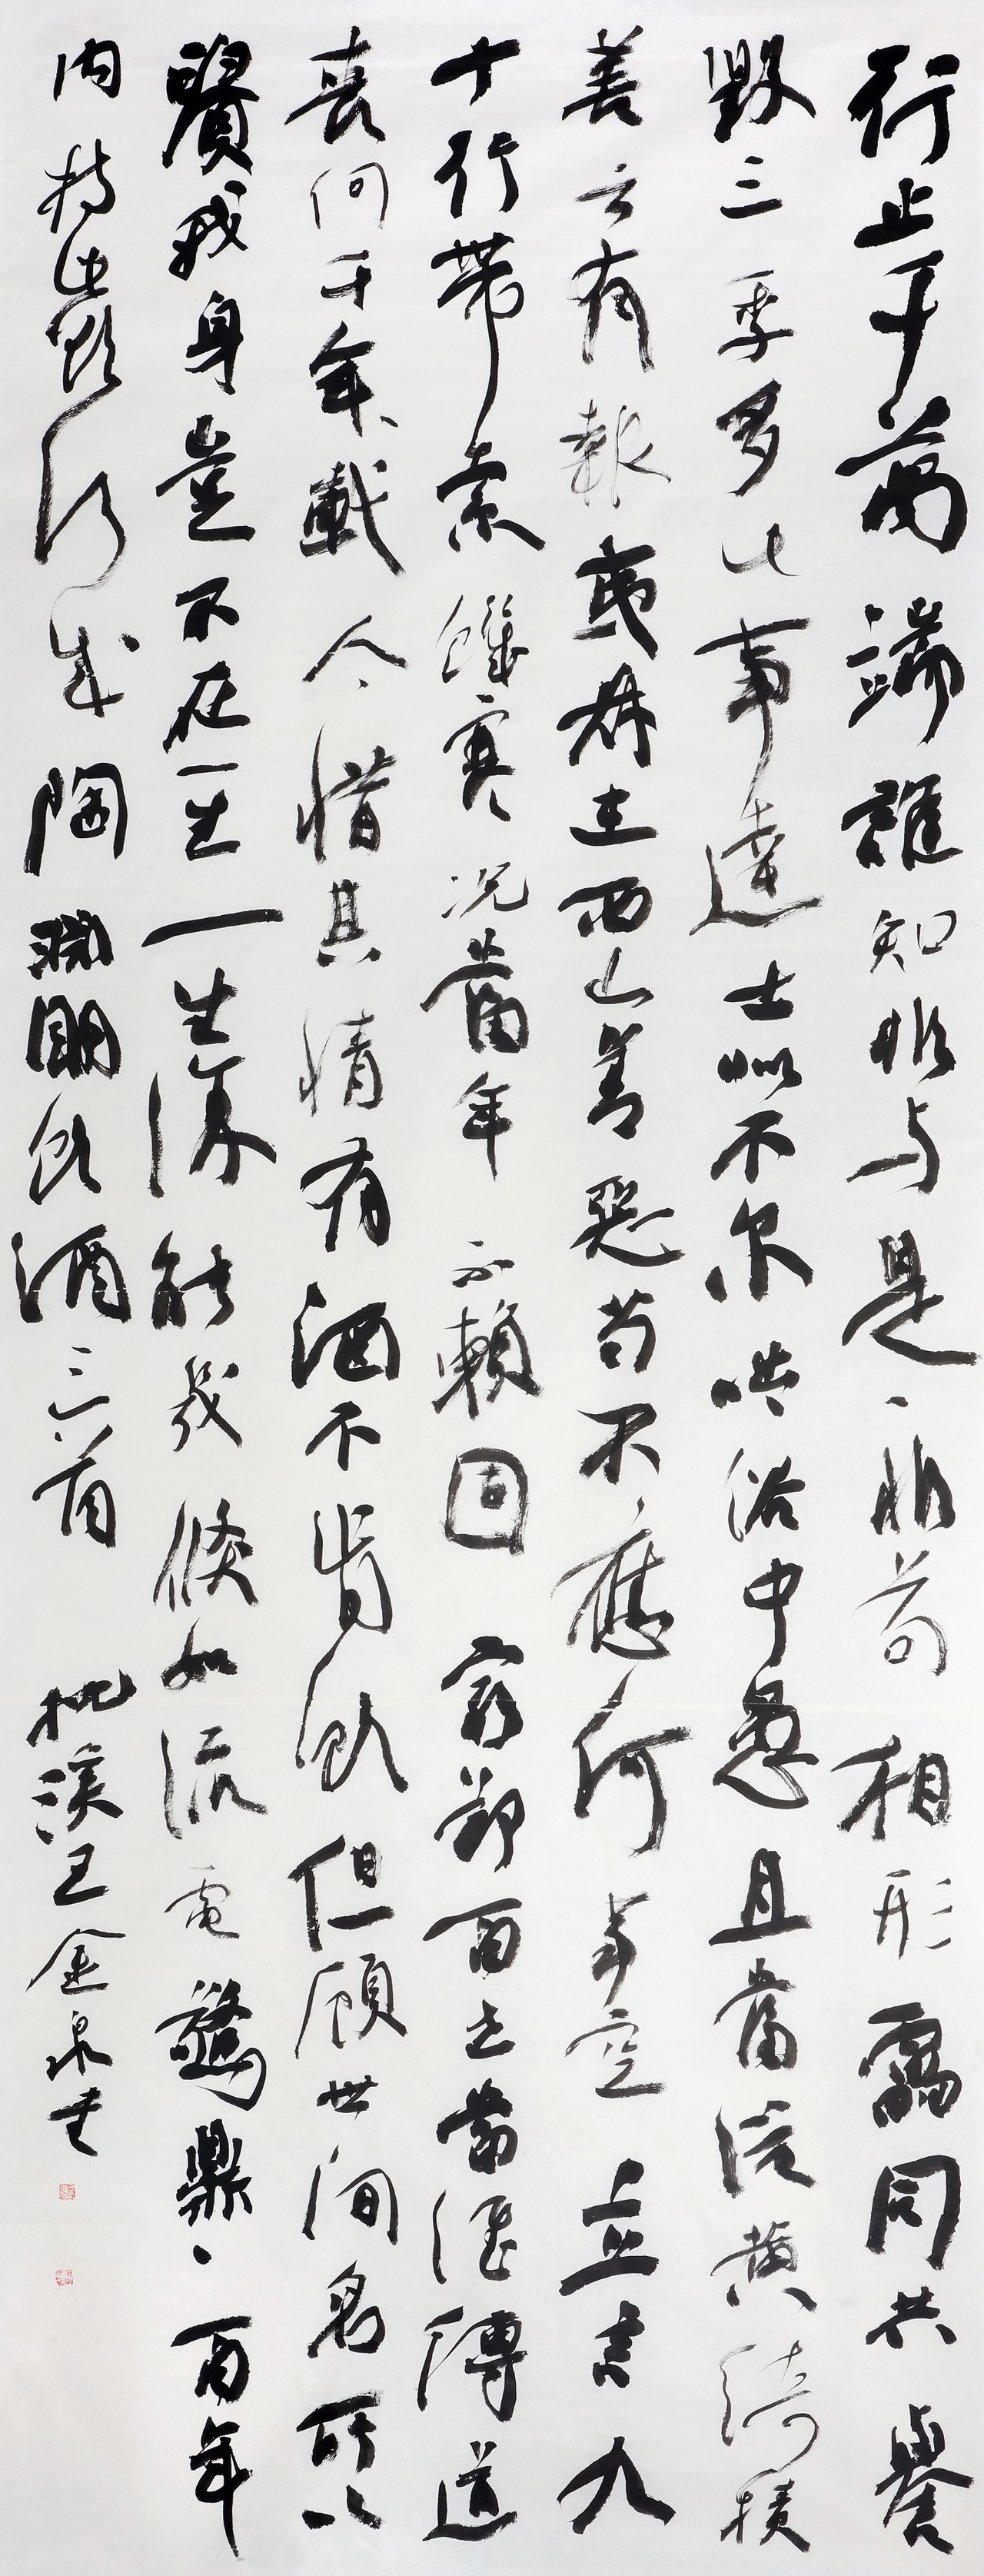 行止千萬端誰知非与是、非苟相形雷同共譽
毀三季多此事達士似不尔咄俗中愚且當從黄綺積
善云有報夷叔在西山善惡苟不應何事空立言九
十行帶索饑寒况當年不賴固窮節百世當誰傳道
喪向千年載人、惜其情有酒不肯飲但顧世間名所以
貴我身豈不在一生一生復能幾倏如流電驚鼎、百年
内持此欲何成陶淵明飲酒三首 桃溪王金泉書